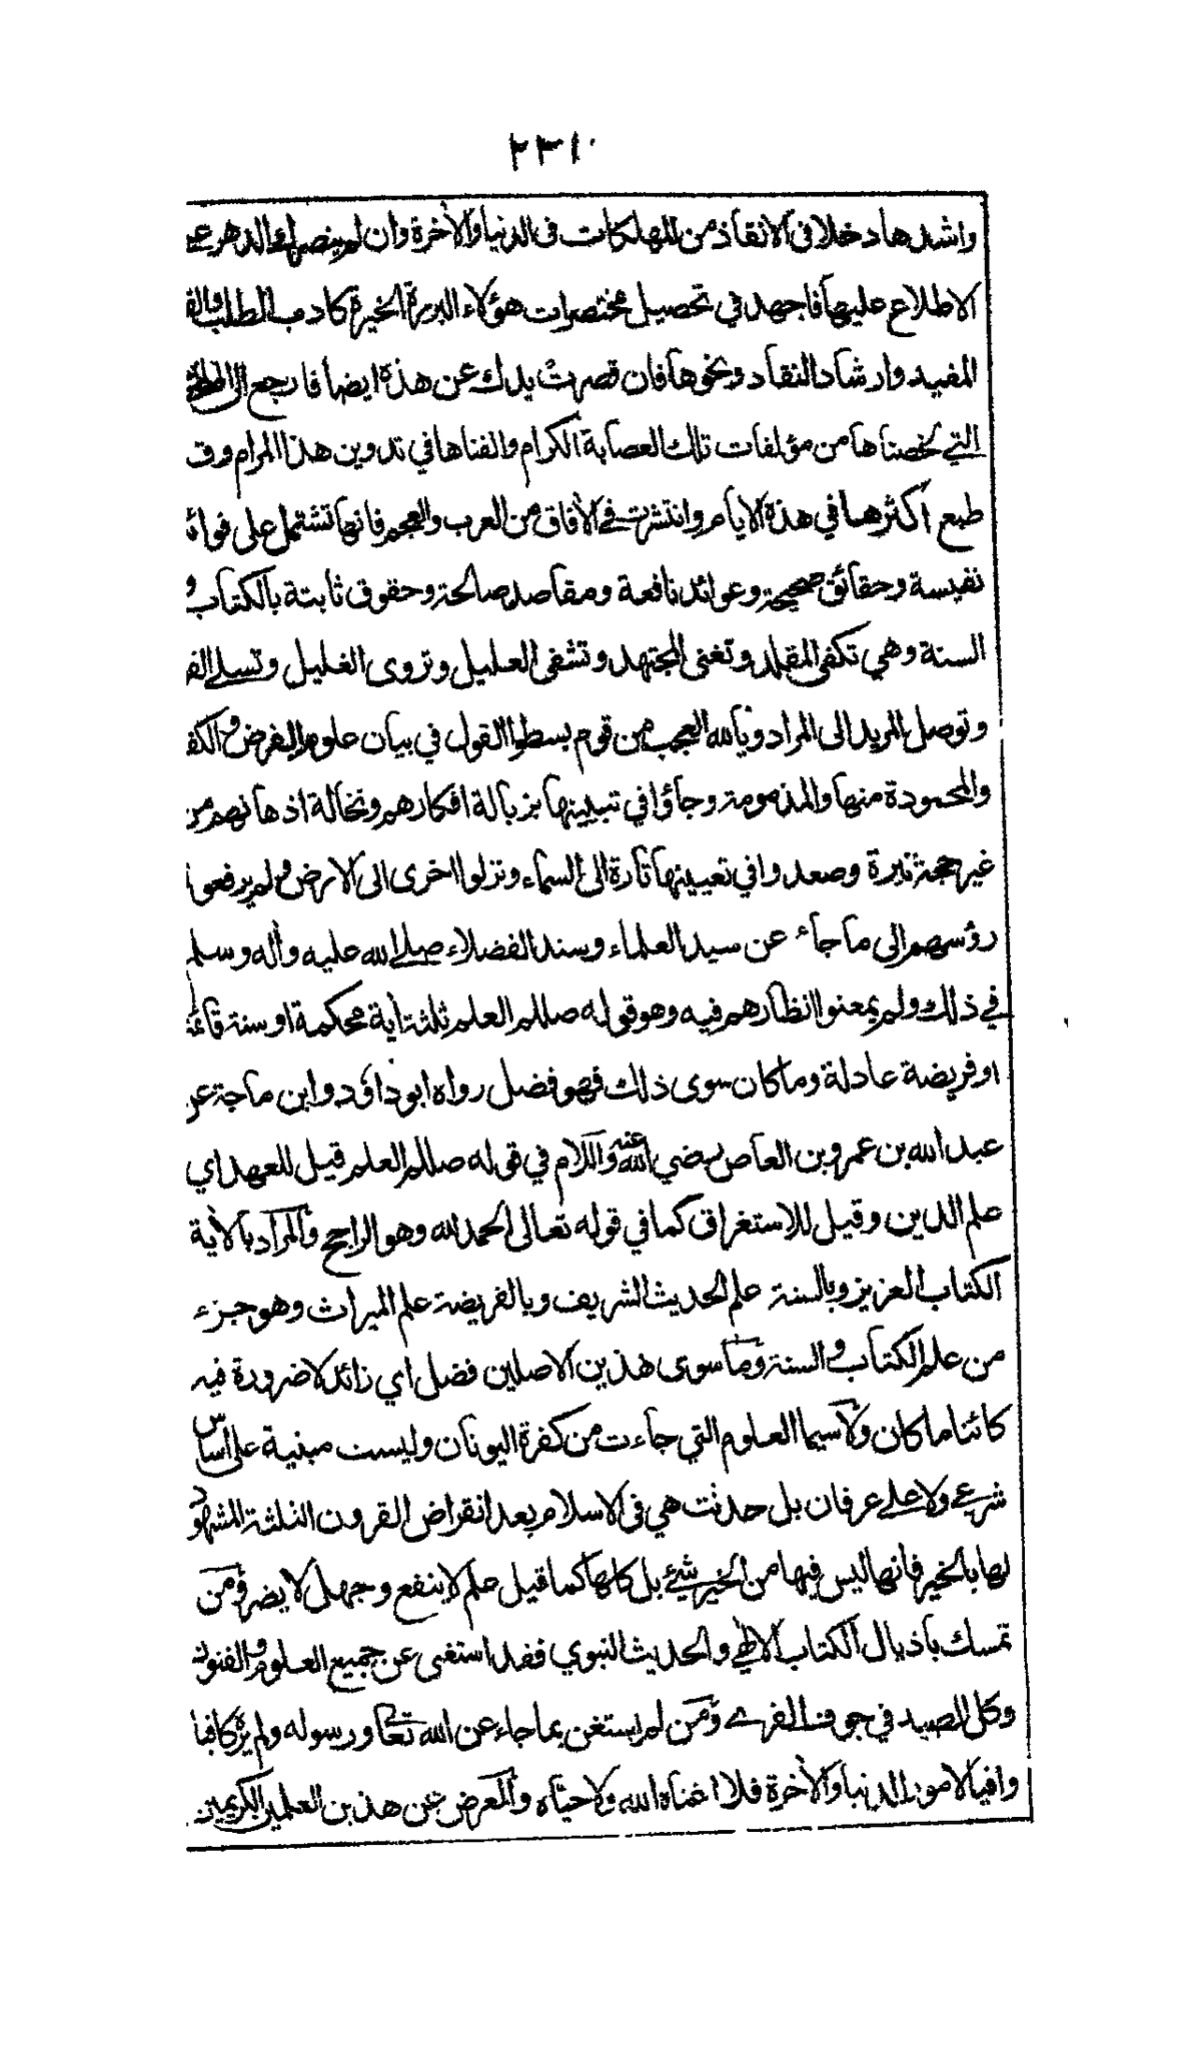 ٢٣١٠
واشدها دخلا في الانقاذ من المهلكات في الدنيا والأخرة وان لم ينصرك الدهر
الاطلاع عليها فاجهد في تحصيل مختصرات هؤلاء البررة الخيرة كادب الطلب
المفيد وارشاد النقاد ونحوها فان قصرت يدك عن هذه ايضا فارجع الى
التي لخصناها من مؤلفات تلك العصابة الكرام والفناها في تدوين هذا المرام وق
طبع أكثرها في هذه الايام وانتشرت في الأفاق من العرب والعجم فانها تشتمل على فوائ
نفيسة وحقائق صحيحة وعوائد نافعة ومقاصد صالحة وحقوق ثابتة بالكتاب و
السنة وهي تكفى المقلد وتغنى المجتهد وتشفى العليل وتروى الغليل وتسلے
وتوصل المريد الى المراد ويالله العجب من قوم بسطوا القول في بيان علوم الفرض والكف
والمحمودة منها والمذمومة وجاؤا في تبيينها بزبالة افكارهم ونخالة اذهانهم من
غير حجة نيرة وصعدوا في تعيينها تارة الى السماء ونزلوا اخرى الى الارض ولم يرفعوا
رؤسهم الى ما جاء عن سيد العلماء وسند الفضلاء صلے الله عليه وأله وسلم
في ذلك ولم يمعنوا انظارهم فيه وهو قوله صللم العلم ثلثة أية محكمة او سنة قائمة
او فريضة عادلة وما كان سوى ذلك فهو فضل رواه ابو داؤد وابن ماجة عن
عبد الله بن عمرو بن العاص رضي الله عنه واللام في قوله صللم العلم قيل للعهد اي
علم الدين وقيل للاستغراق كما في قوله تعالى الحمد لله وهو الراجح والمراد بالأية
الكتاب العزيز وبالسنة علم الحديث الشريف وبالفريضة علم الميراث وهو جزء
من علم الكتاب والسنة وما سوى هذين الاصلين فضل اي زائد لا ضرورة فيه
كائنا ما كان ولا سيما العلوم التي جاءت من كفرة اليونان وليست مبنية على اساس
شرعي ولا علے عرفان بل حدثت هي في الاسلام بعد انقراض القرون الثلثة المشهود
لها بالخير فانها ليس فيها من الخير شيئ بل كلها كما قيل علم لا ينفع وجهل لا يضر ومن
تمسك بأذيال الكتاب الالهي والحديث النبوي فقد استغنى عن جميع العلوم والفنون
وكل الصيد في جوف الفرے ومن لم يستغن بما جاء عن الله تعالى ورسوله ولم يره كافيا
وافيا لامور الدنيا والأخرة فلا اغناه الله ولا حياه والمعرض عن هذين العلمين الكريمين